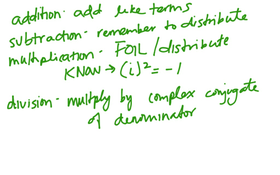 addition - add like terms
subtraction - remember to distribute
multiplication - FOIL / distribute
KNOW → (i)² = -1
division - multiply by complex conjugate
of denominator